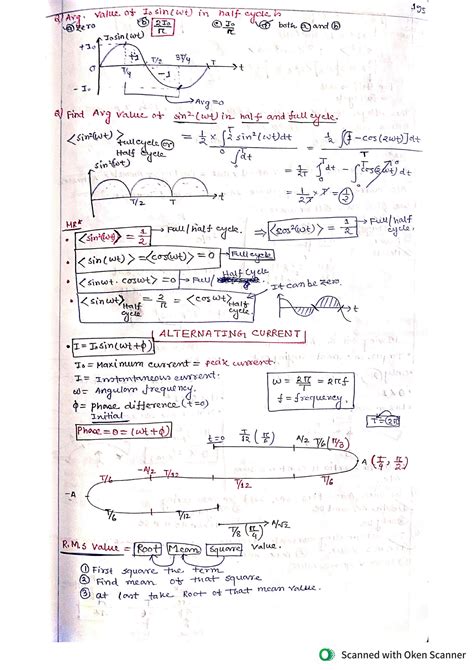 Q) Avg. value of I₀sin(ωt) in half cycle is
(a) zero (b) 2I₀/π (c) I₀/π (d) both (a) and (b)
195
+I₀
I₀sin(ωt)
+1
O
T/4
T/2
3T/4
T
t
-1
-I₀
Avg = 0
Q) Find Avg value of sin²(ωt) in half and full cycle.
<sin²(ωt)> Full cycle or Half cycle
= 1/2 × ∫₀ᵀ 2sin²(ωt)dt / ∫₀ᵀ dt = 1/2 ∫[1 - cos(2ωt)]dt / T
sin²(ωt)
= 1/2T ∫₀ᵀ dt - ∫₀ᵀ cos(2ωt) dt
T/2
T
t
= 1/2T × T = 1/2
MR*
• <sin²(ωt)> = 1/2 → Full/half cycle. ⇒ <cos²(ωt)> = 1/2 → Full/half cycle
• <sin(ωt)> = <cos(ωt)> = 0 → Full cycle
• <sinωt · cosωt> = 0 → Full/ Half Cycle
• <sinωt> Half cycle = 2/π = <cosωt> Half cycle.
It can be zero.
t
ALTERNATING CURRENT
• I = I₀sin(ωt+ϕ)
I₀ = Maximum current = peak current.
I = Instantaneous current.
ω = Angular frequency.
ϕ = phase difference (t=0)
Initial
ω = 2π/T = 2πf
f = frequency.
Phase = θ = (ωt+ϕ)
T = (2π)
t=0
T/12 (π/6)
A/2
T/6 (π/3)
A (T/4, π/2)
-A/2
T/12
T/6
T/12
T/6
-A
T/6
T/12
T/8 (π/4)
A/√2
R.M.S Value = Root Mean Square Value.
① First square the term
② Find mean of that square
③ at last take Root of That mean value.
Scanned with Oken Scanner